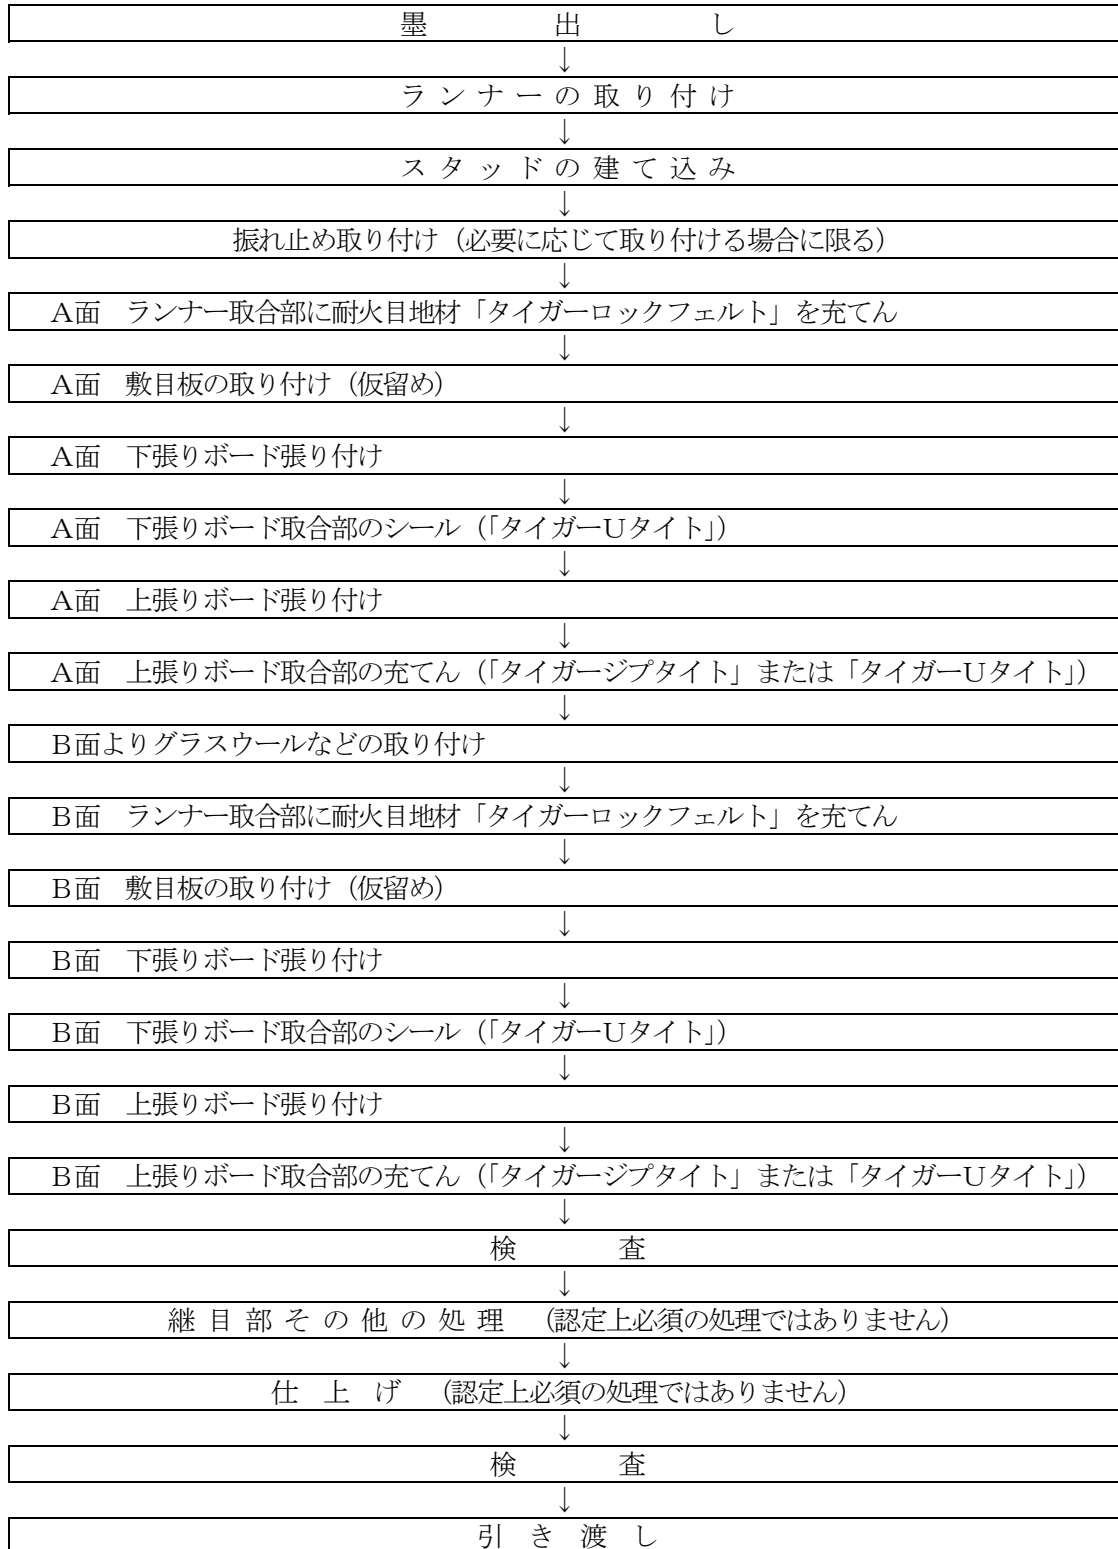 墨出し
↓
ランナーの取り付け
↓
スタッドの建て込み
↓
振れ止め取り付け（必要に応じて取り付ける場合に限る）
↓
A面　ランナー取合部に耐火目地材「タイガーロックフェルト」を充てん
↓
A面　敷目板の取り付け（仮留め）
↓
A面　下張りボード張り付け
↓
A面　下張りボード取合部のシール（「タイガーUタイト」）
↓
A面　上張りボード張り付け
↓
A面　上張りボード取合部の充てん（「タイガージプタイト」または「タイガーUタイト」）
↓
B面よりグラスウールなどの取り付け
↓
B面　ランナー取合部に耐火目地材「タイガーロックフェルト」を充てん
↓
B面　敷目板の取り付け（仮留め）
↓
B面　下張りボード張り付け
↓
B面　下張りボード取合部のシール（「タイガーUタイト」）
↓
B面　上張りボード張り付け
↓
B面　上張りボード取合部の充てん（「タイガージプタイト」または「タイガーUタイト」）
↓
検査
↓
継目部その他の処理　（認定上必須の処理ではありません）
↓
仕上げ　（認定上必須の処理ではありません）
↓
検査
↓
引き渡し